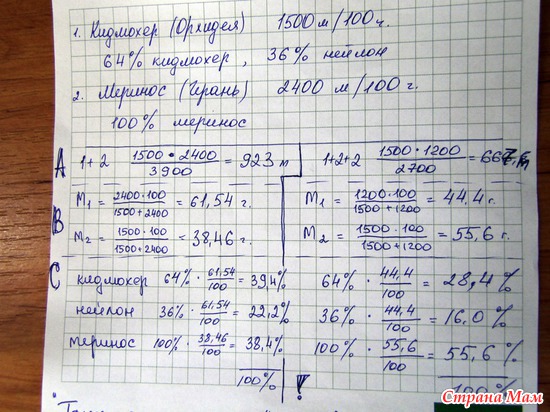 1. Кидмохер (Орхидея) 1500 м/100г.
64% кидмохер, 36% нейлон
2. Меринос (Герань) 2400 м/100 г.
100% меринос
A 1+2 1500 • 2400 / 3900 = 923 м
1+2+2 1500 • 1200 / 2700 = 667 м
B M1 = 2400·100 / 1500+2400 = 61,54 г.
M1 = 1200·100 / 1500+1200 = 44,4 г.
M2 = 1500·100 / 1500+2400 = 38,46 г.
M2 = 1500·100 / 1500+1200 = 55,6 г.
C кидмохер 64% · 61,54 / 100 = 39,4%
64% · 44,4 / 100 = 28,4%
нейлон 36% · 61,54 / 100 = 22,2%
36% · 44,4 / 100 = 16,0 %
меринос 100% · 38,46 / 100 = 38,4%
100% · 55,6 / 100 = 55,6 %
100% !
100%
Страна Мам